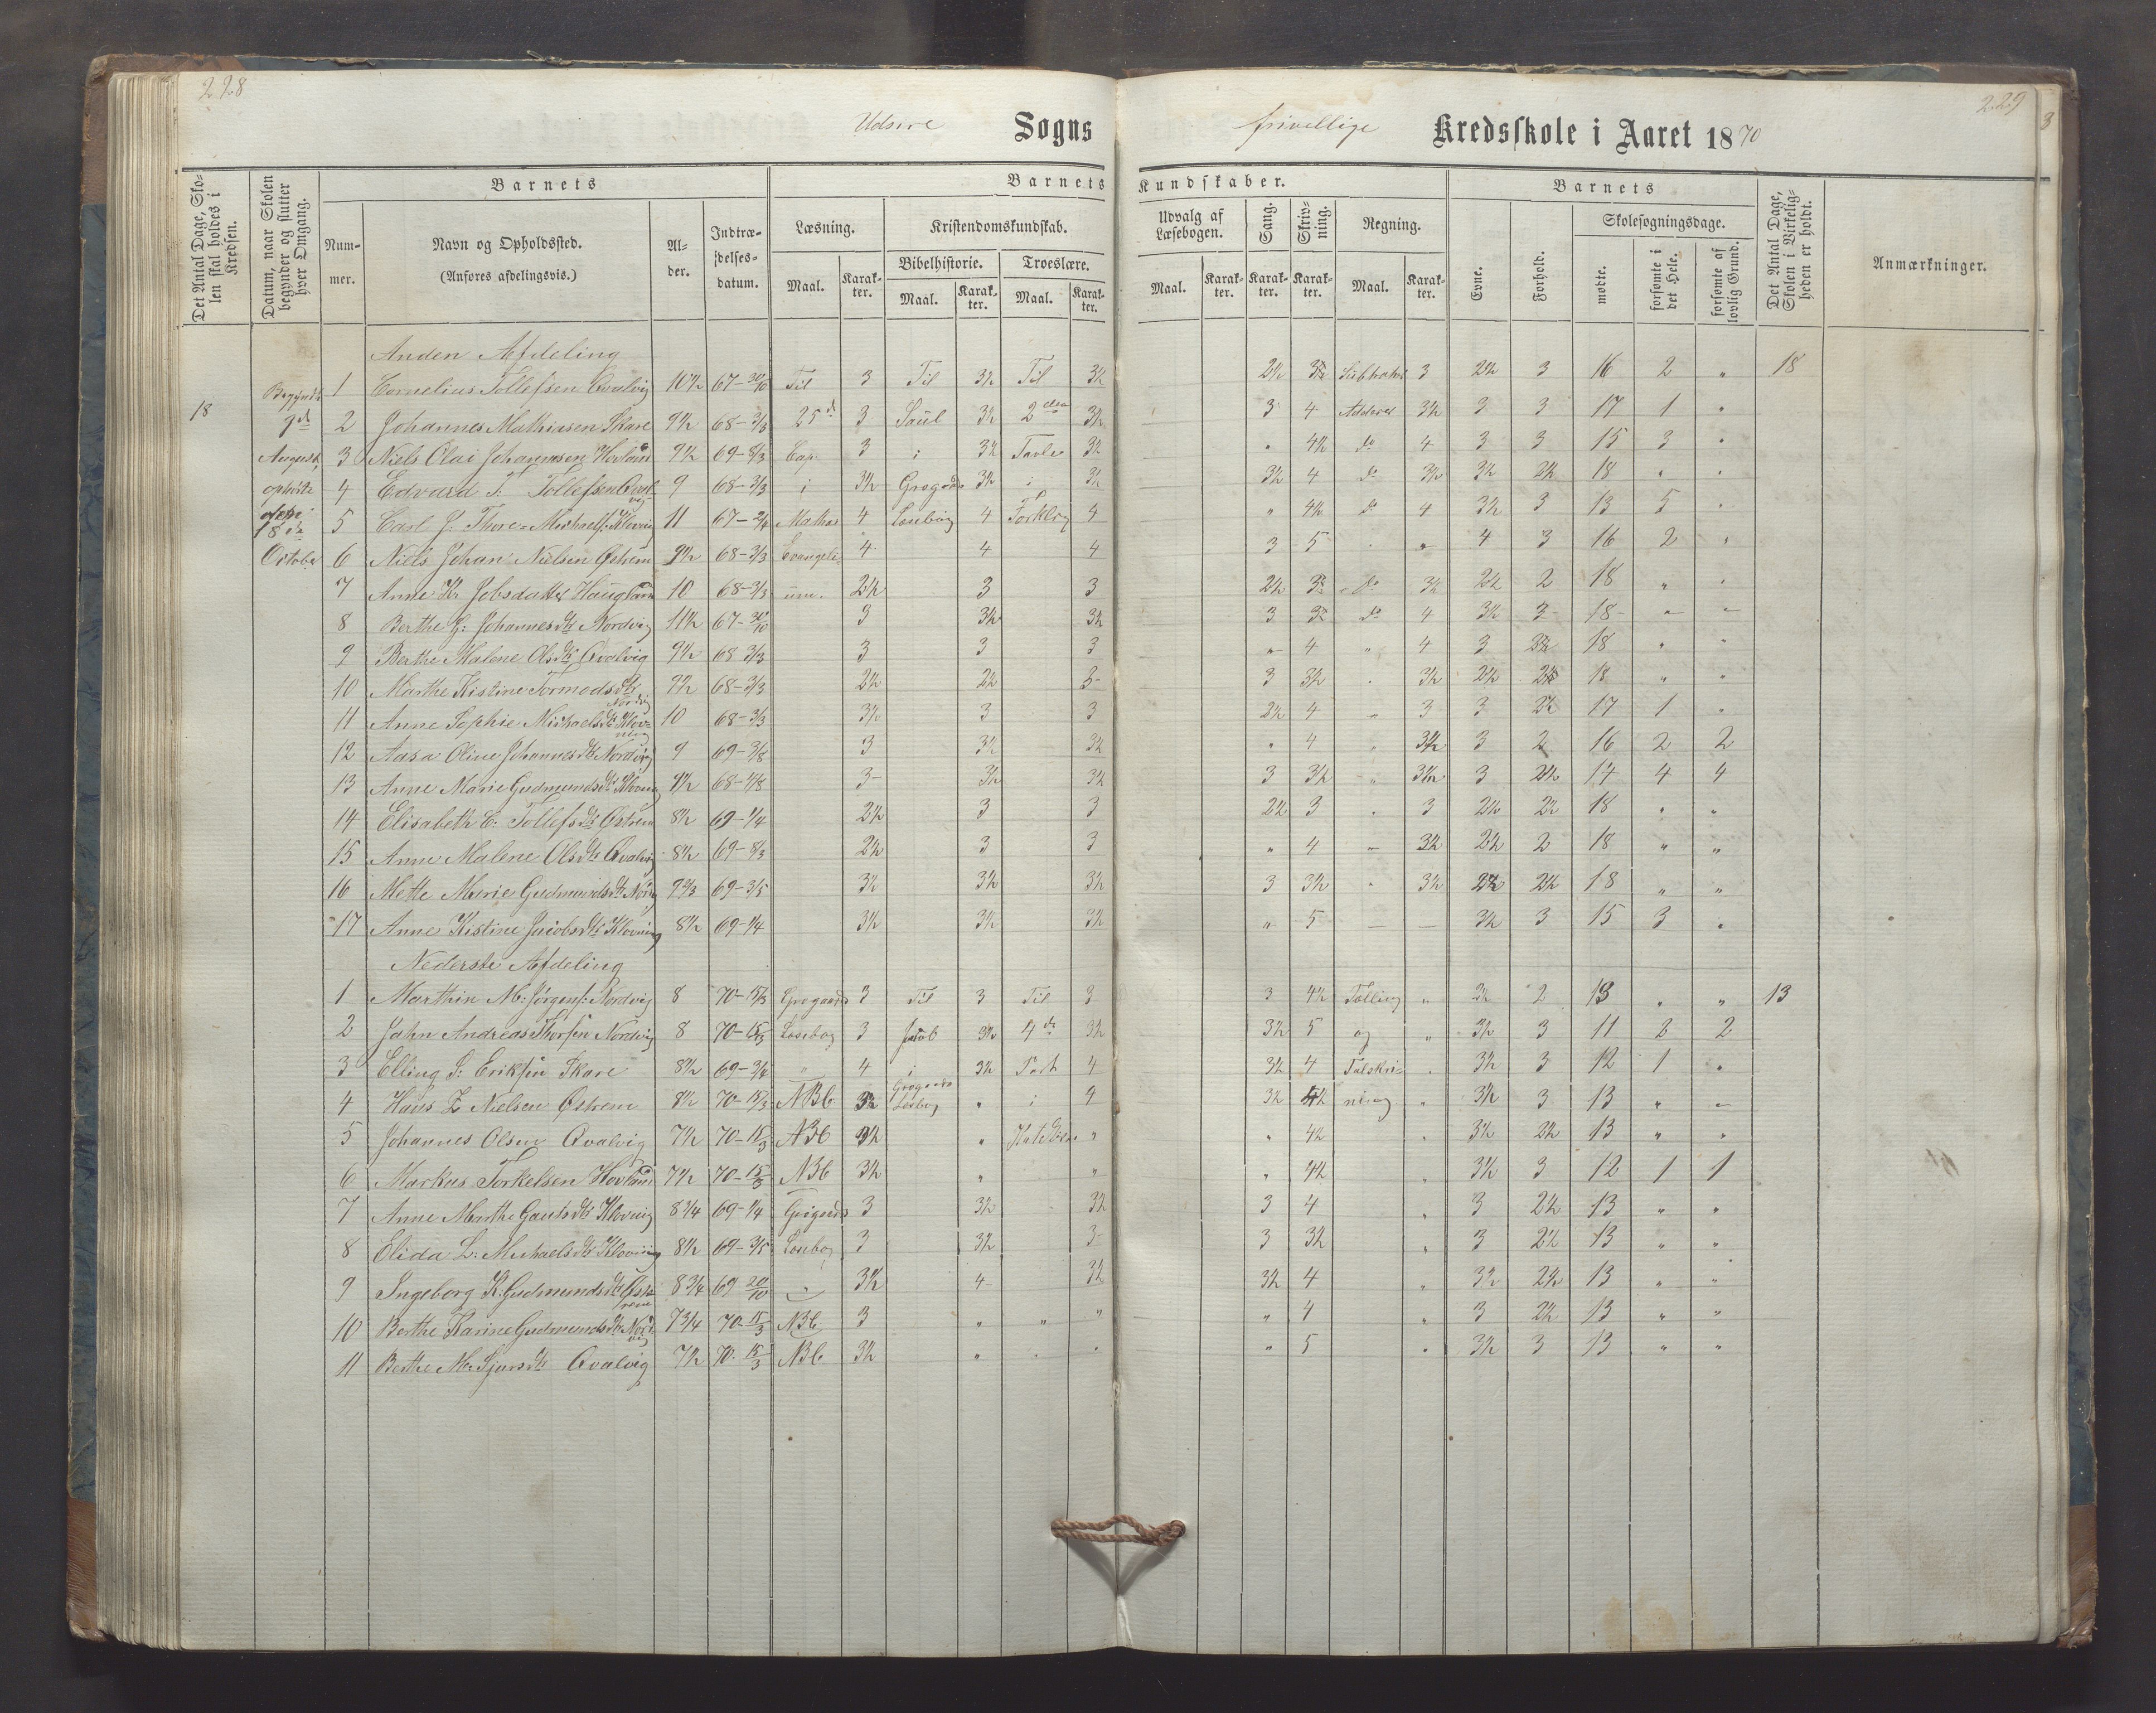 228
229
Udsire Sogns frivillige Kredsskole i Aaret 1870
Det Antal Dage, Skolen skal holdes i Kredsen.
Datum, naar Skolen begynder og slutter hver Omgang.
Barnets
Nummer.
Navn og Opholdssted.
(Anføres afdelingsvis.)
Alder.
Indtrædelsesdatum.
Barnets Kundskaber.
Læsning.
Maal. Karakter.
Kristendomskundskab.
Bibelhistorie. Troeslære.
Maal. Karakter. Maal. Karakter.
Udvalg af Læsebogen.
Maal. Karakter.
Sang.
Karakter.
Skrivning.
Karakter.
Regning.
Maal. Karakter.
Barnets
Evne.
Forhold.
Skolesøgningsdage.
mødte.
forsømte i det Hele.
forsømte af lovlig Grund.
Det Antal Dage, Skolen i Virkeligheden er holdt.
Anmærkninger.
18
Begyndt
August
ophørte
18de
October
Anden Afdeling
1 Cornelius Tollefsen Qvalvig 10½ 67-30/10 Til 3 Til 3½ Til 3½ 2½ 3 2½ 3 16 2 " 18
2 Johannes Mathiasen Skare 9½ 68-3/3 25d 3 Saul 3½ 2den 3½ 3 4 3½ 3 3 17 1 "
3 Niels Olai Johannesen Hovland 9½ 69-8/3 Cap. 3 i 3½ Tavle 3½ " 4½ do 4 3 3 15 3 "
4 Edvard T. Tollefsen Qvalvig 9 68-3/3 i 3½ 3½ i 3½ 3½ 4 do 3½ 3½ 2½ 18 " "
5 Carl J. Thore Michaels. Klovning 11 67-2/4 4 4 4 " 4½ do 4 3½ 3 13 5 "
6 Niels Johan Nielsen Østrem 9½ 68-3/3 Evangeli 4 4 4 3 5 " " 4 3 16 2 "
7 Anne Kr Jobsdatter Haugland 10 68-3/3 um. 2½ 3 3 2½ do 3½ 2½ 2 18 " "
8 Berthe G. Johannesdtr Nordvig 11½ 67-30/10 3 3½ 3½ 3 do 4 3½ 3 18 " "
9 Berthe Malene Olsdtr Qvalvig 9½ 68 3/3 3 3 3 " 4 " 4 3 2½ 18 " "
10 Marthe Kistine Tormodsdtr Nordvig 9½ 68-3/3 2½ 2½ 3 3 3½ " 3½ 2½ 2½ 18 " "
11 Anne Sophie Michaelsdtr Klovning 10 68-3/3 3½ 3 3 2½ 4 " 3 3 2½ 17 1 "
12 Aasa Oline Johannesdtr Nordvig 9 69-3/8 3 3½ 3½ " 4 " 3½ 3 2 16 2 2
13 Anne Marie Gudmundsdtr Klovning 9½ 68-1/8 3 3½ 3½ 3 3½ " 3½ 3 2½ 14 4 4
14 Elisabeth C. Tollefsdtr Østrem 8½ 69-1/4 2½ 3 3 2½ 3 " 3 2½ 2½ 18 " "
15 Anne Malene Olsdtr Qvalvig 8½ 69-8/3 2½ 3 3 " 4 " 3½ 2½ 2 18 " "
16 Mette Marie Gudmundsdtr 9⅔ 69-3/5 3½ 3½ 3½ 3 3½ " 3½ 2½ 2½ 18 " "
17 Anne Kistine Jacobsdtr Klovning 8½ 69-1/4 3½ 3½ 3½ " 5 — — 3½ 3 15 3 "
Nederste Afdeling
1 Marthin M. Jørgens. Nordvig 8 70-15/3 3 Til 3 Til 3 3 4½ Tælling " 2½ 2 13 " " 13
2 Jahn Andreas Thorsen Nordvig 8 70-15/3 Læsebog 3 Jacob 3½ 4de 3½ 3½ 5 og " 3½ 3 11 2 2
3 Elling S. Eriksen Skare 8½ 69-3/4 " 4 i 3½ Part 4 3½ 4 Talskri- " 3½ 3 12 1 "
4 Hans Z Nielsen Østrem 8½ 70-15/3 ABC 3½ " i 4 3½ 4½ vning " 3½ 3 13 " "
5 Johannes Olsen Qvalvig 7½ 70-15/3 ABC 3½ " " " 4½ " 3½ 2½ 13 " "
6 Markus Torkelsen Hovland 7½ 70-15/3 ABC 3½ " " " 4½ " 3½ 3 12 1 1
7 Anne Marthe Gautsdtr Klovning 8¾ 69-1/4 3 3½ 3½ 3 4 " 3 2½ 13 " "
8 Elida L. Michaelsdtr Klovning 8½ 69-3/5 Læsebog 3 3½ 3 3 3½ " 3 2½ 13 " "
9 Ingeborg K. Gudmundsdtr Østrem 8¾ 69 20/10 " 3½ 4 3½ 3½ 4 " 3½ 2½ 13 " "
10 Berthe Karine Gudmundsdtr Nordvig 7¾ 70-15/3 ABC 3 " " " " 4 " 3 2½ 13 " "
11 Berthe M. Sjursdtr Qvalvig 7½ 70-15/3 ABC 3½ " " " " 5 " 3½ 3 13 " "